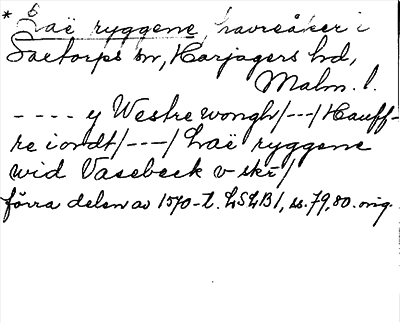 * Laë ryggene, havreåker i
Saxtorps sn, Harjagers hd,
Malm. l.
- - - - y Westre wongh/---/Hauff-
re iordt/---/Laë ryggene
wid Vasebeck v skr/
förra delen av 1570-t. LSLB1, ss. 79, 80. orig.